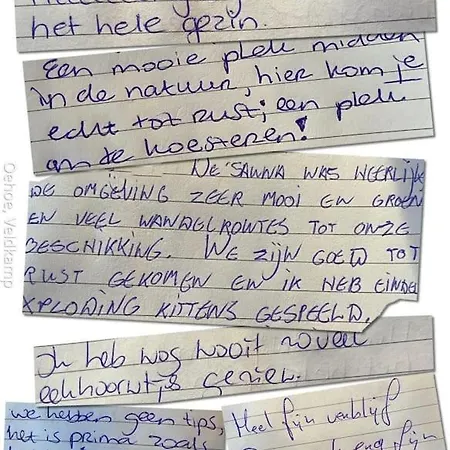 het hele gezin.
Een mooie plek midden
in de natuur, hier kom je
echt tot rust; een plek
om te koesteren!
DE SAUNA WAS HEERLIJK
DE OMGEVING ZEER MOOI EN GROEN
EN VEEL WANDELROUTES TOT ONZE
BESCHIKKING. WE ZIJN GOED TOT
RUST GEKOMEN EN IK HEB EINDEL
XPLODING KITTENS GESPEELD.
Ik heb nog nooit zoveel
eekhoorntjes gezien.
we hebben geen tips,
het is prima zoals
Heel fijn verblijf
fijn
Oehoe, Veldkamp